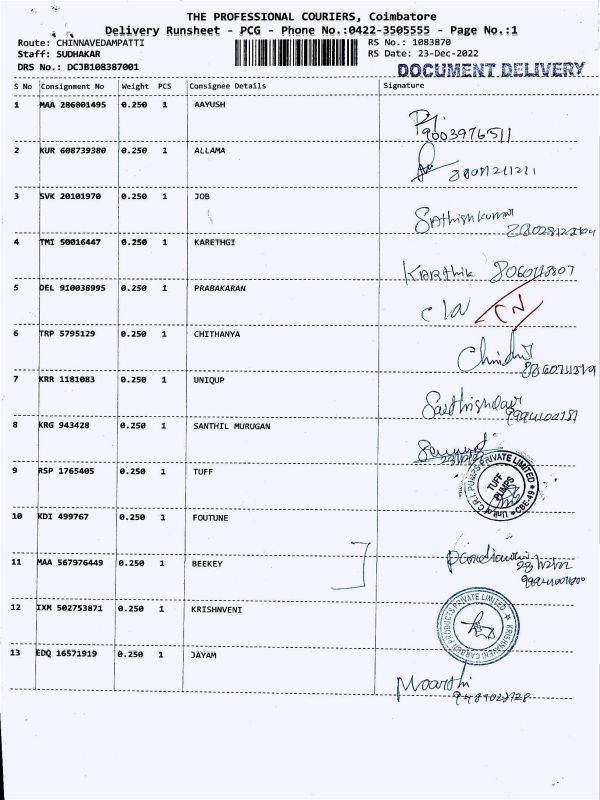 THE PROFESSIONAL COURIERS, Coimbatore
Delivery Runsheet - PCG - Phone No.:0422-3505555 - Page No.:1
Route: CHINNAVEDAMPATTI RS No.: 1083870
Staff: SUDHAKAR RS Date: 23-Dec-2022
DRS No.: DCJB108387001 DOCUMENT DELIVERY
S No Consignment No Weight PCS Consignee Details Signature
1 MAA 286801495 0.250 1 AAYUSH
9003976511
2 KUR 608739380 0.250 1 ALLAMA
3 SVK 20101970 0.250 1 JOB
Sathishkumar
4 TMI 50016447 0.250 1 KARETHGI
Karthik
5 DEL 910038995 0.250 1 PRABAKARAN
CN
6 TRP 5795129 0.250 1 CHITHANYA
7 KRR 1181083 0.250 1 UNIQUP
8 KRG 943428 0.250 1 SANTHIL MURUGAN
9 RSP 1765405 0.250 1 TUFF
TUFF PUMPS
C.R.I. PUMPS PRIVATE LIMITED
CBE-49
10 KDI 499767 0.250 1 FOUTUNE
11 MAA 567976449 0.250 1 BEEKEY
12 IXM 502753871 0.250 1 KRISHNVENI
KRISHNAVENI CARBON PRODUCTS PRIVATE LIMITED
13 EDQ 16571919 0.250 1 JAYAM
Moorthi